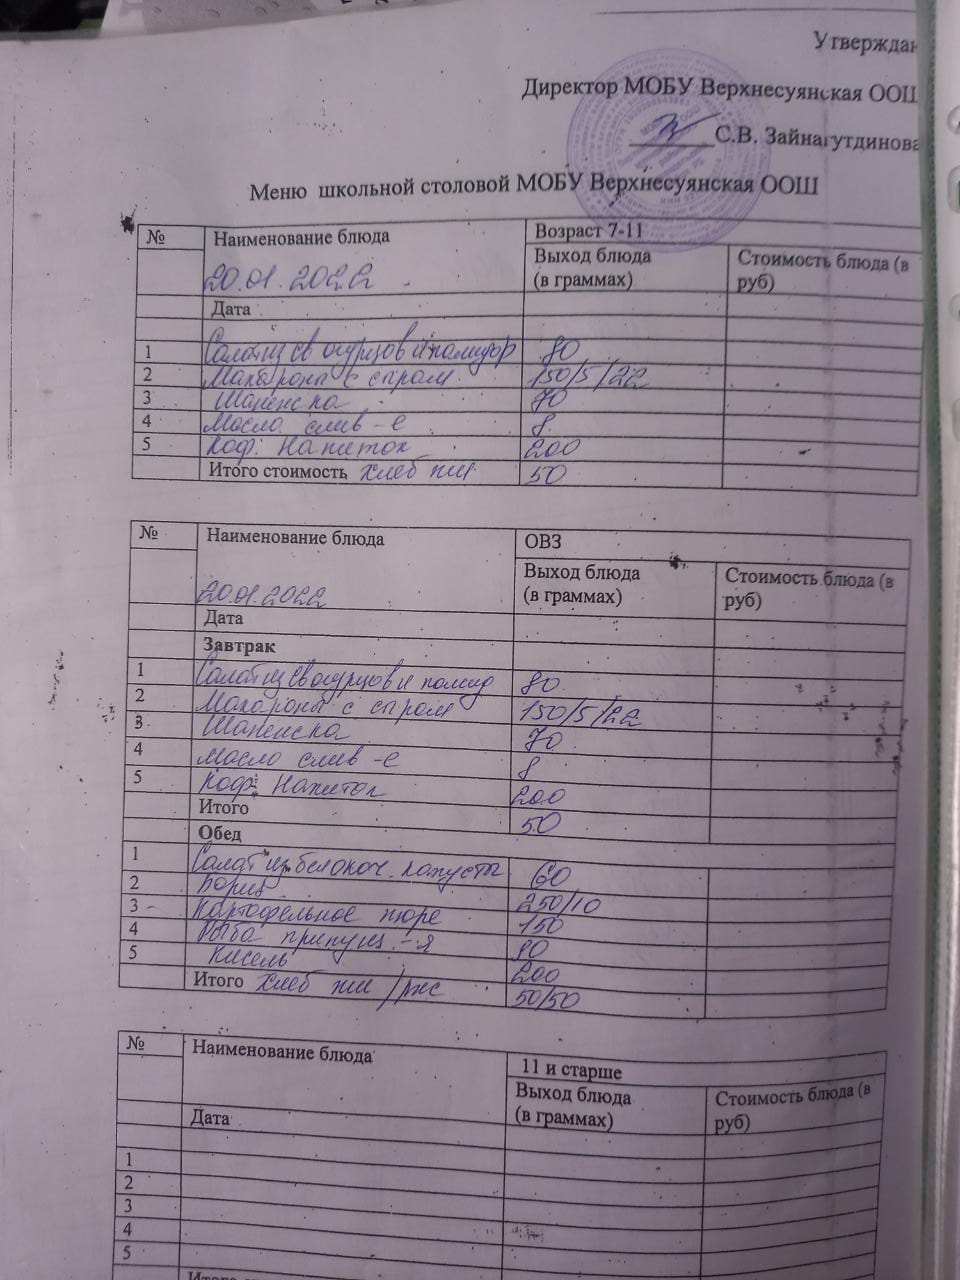 Утверждаю
Директор МОБУ Верхнесуянская ООШ
С.В. Зайнагутдинова
Меню школьной столовой МОБУ Верхнесуянская ООШ
№ Наименование блюда Возраст 7-11
20.01.2022 Выход блюда (в граммах) Стоимость блюда (в руб)
Дата
1 Салат из св огурцов и помидор 80
2 Макароны с сыром 150/5/22
3 Шанежка 70
4 Масло слив-е 8
5 Коф. Напиток 200
Итого стоимость хлеб пш 50
№ Наименование блюда ОВЗ
20.01.2022 Выход блюда (в граммах) Стоимость блюда (в руб)
Дата
Завтрак
1 Салат из св огурцов и помид 80
2 Макароны с сыром 150/5/22
3 Шанежка 70
4 Масло слив-е 8
5 Коф. Напиток 200
Итого 50
Обед
1 Салат из белокоч. капусты 60
2 Борщ 250/10
3 Картофельное пюре 150
4 Рыба припущ.-я 80
5 Кисель 200
Итого хлеб пш/рж 50/50
№ Наименование блюда 11 и старше
Выход блюда (в граммах) Стоимость блюда (в руб)
Дата
1
2
3
4
5